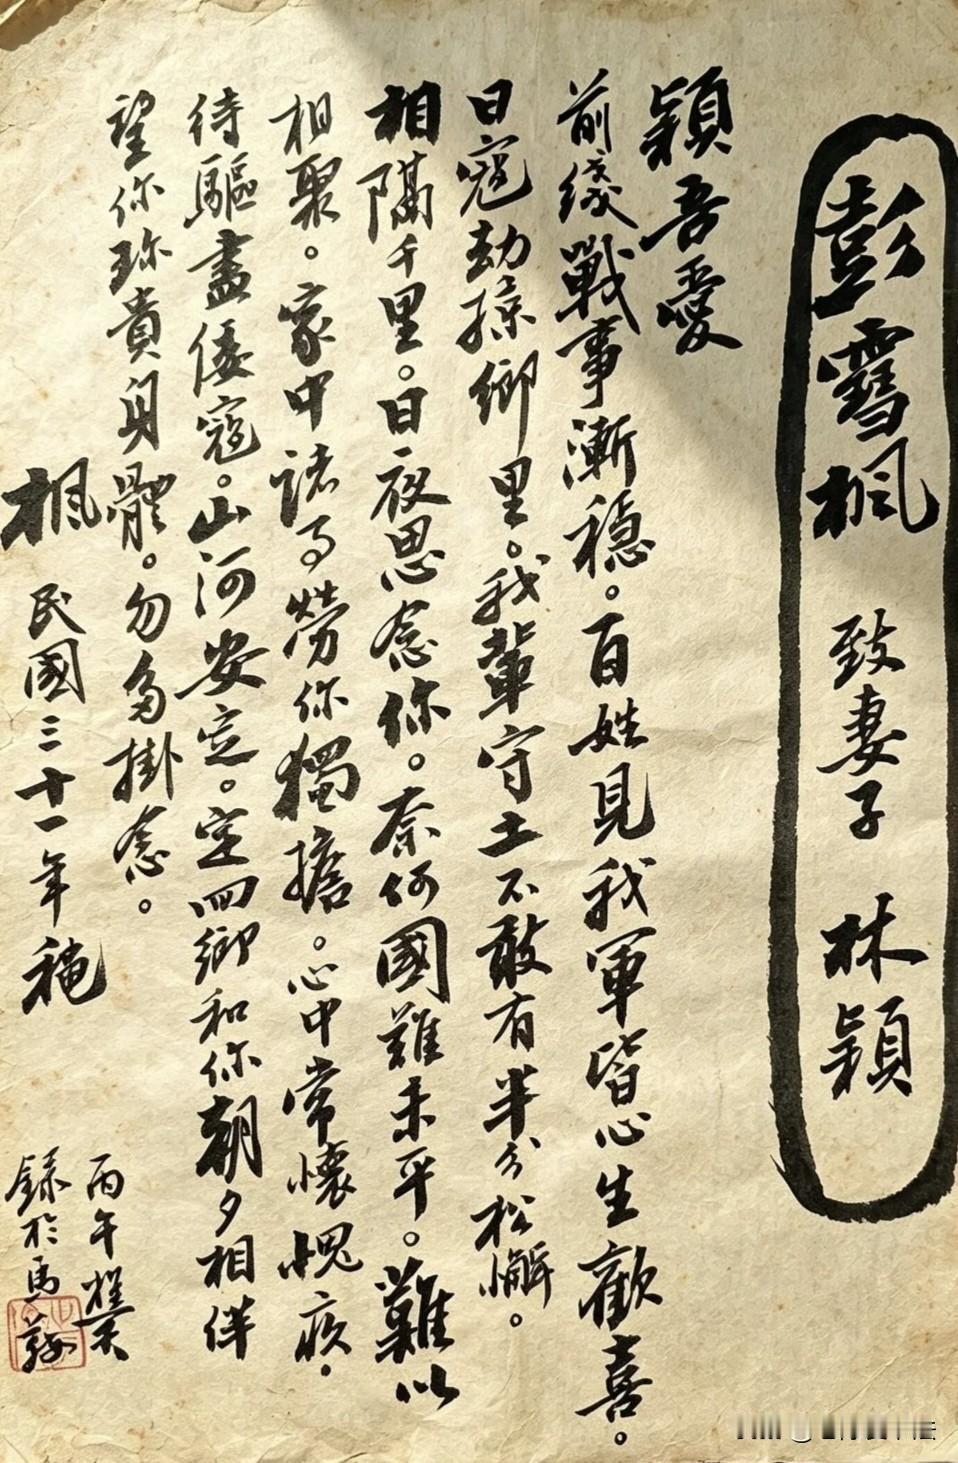 彭雪楓 致妻子 林穎
穎吾愛
前綫戰事漸穩。百姓見我軍皆心生歡喜。
日寇劫掠鄉里。我輩守土不敢有半分松懈。
相隔千里。日夜思念你。奈何國難未平。難以
相聚。家中諸事勞你獨擔。心中常懷愧疚。
待驅盡倭寇。山河安定。定回鄉和你朝夕相伴
望你珍貴身體。勿多掛念。
楓 民國三十一年 秋
丙午
錄於馬